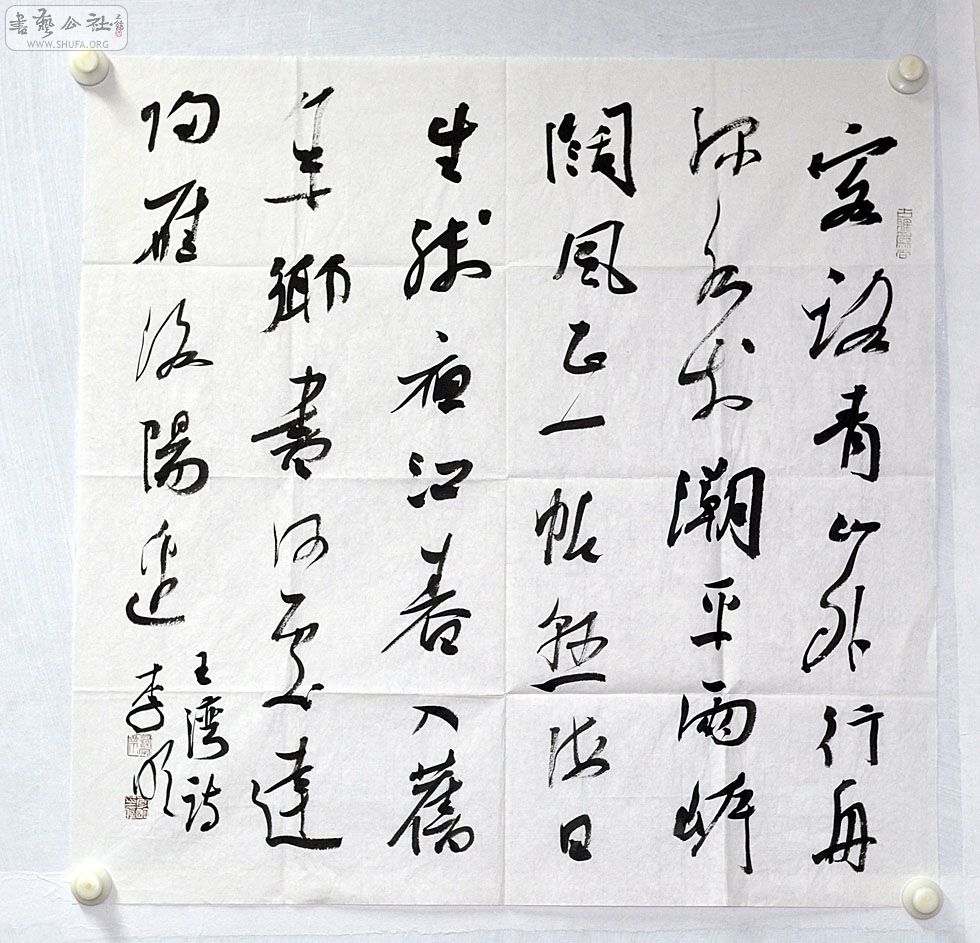 書藝公社
WWW.SHUFA.ORG
客路青山外行舟
绿水前潮平兩岸
闊風正一帖懸海日
生残夜江春入舊
年鄉書何處達
归雁洛陽邊
王灣诗
李